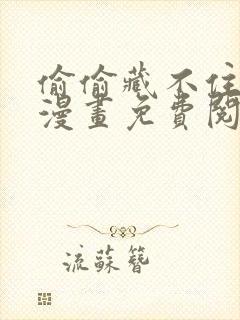 偷偷藏不住
漫畫免費閱
流蘇簪